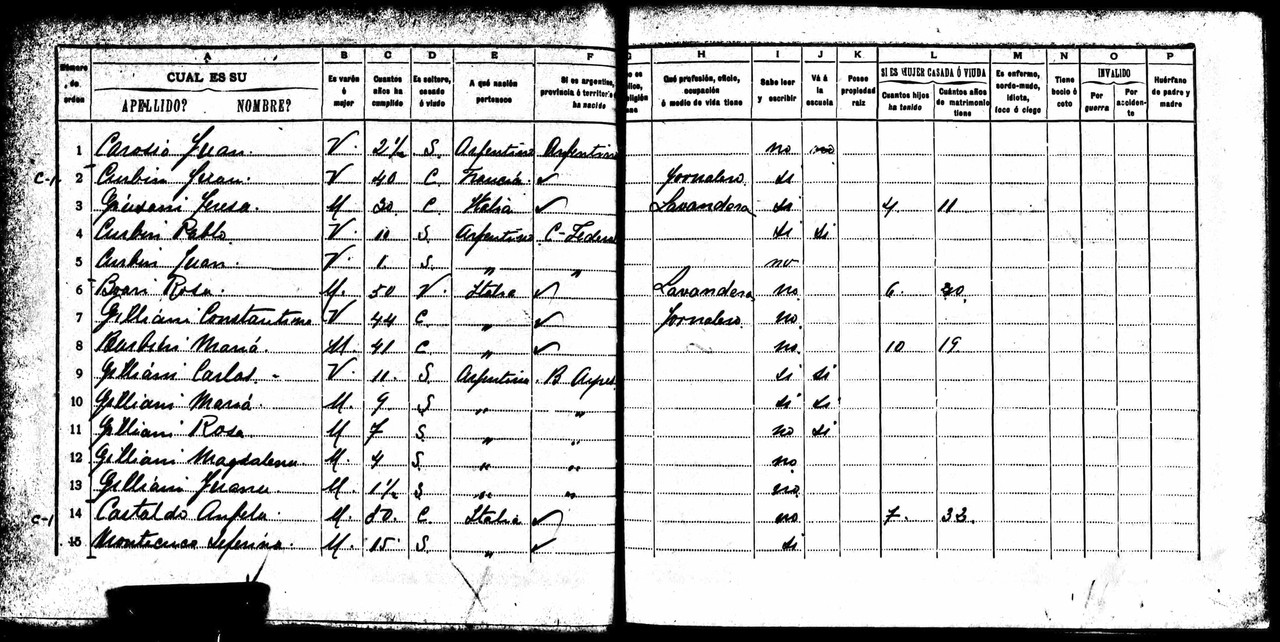 A B C D E F G H I J K L M N O P
Número de orden CUAL ES SU APELLIDO? NOMBRE? Es varón ó mujer Cuantos años ha cumplido Es soltero, casado ó viudo A qué nación pertenece Si es argentino, provincia ó territorio ha nacido Qué profesión, oficio, ocupación ó medio de vida tiene Sabe leer y escribir Vá á la escuela Posee propiedad raiz SI ES MUJER CASADA Ó VIUDA Cuantos hijos ha tenido Cuántos años de matrimonio tiene Es enfermo, sordo-mudo, idiota, loco ó ciego Tiene bocio ó coto INVALIDO Por guerra Por acciden-te Huérfano de padre y madre
1 Carosio Juan. V. 2½ S. Argentino Argentino no no
C-1 2 Curbin Juan. V 40 C. Francia ✓ Jornalero si
3 Teresa. M 30 C. Italia ✓ Lavandera si 4 11
4 Curbin Pablo V. 11 S. Argentino C-Federal si si
5 Curbin Juan. V. 1. S. " " no
6 Boari Rosa. M. 50 V. Italia ✓ Lavandera no 6. 30.
7 Gilliani Constantino V 44 C. " ✓ Jornalero. no
8 Barbin Maria. M. 41 C. " ✓ no. 10 19.
9 Gilliani Carlos. - V. 11. S. Argentina B. Ayres si si
10 Gilliani Maria. M. 9. S " " si si
11 Gilliani Rosa. M 7 S. " " no si
12 Gilliani Magdalena. M. 4 S. " " no
13 Gilliani Juana M. 1½ S " " no
C-1 14 Castaldo Anjela. M. 80. C. Italia ✓ no 7. 33.
15 Seferina. M. 15 S. " ✓ si